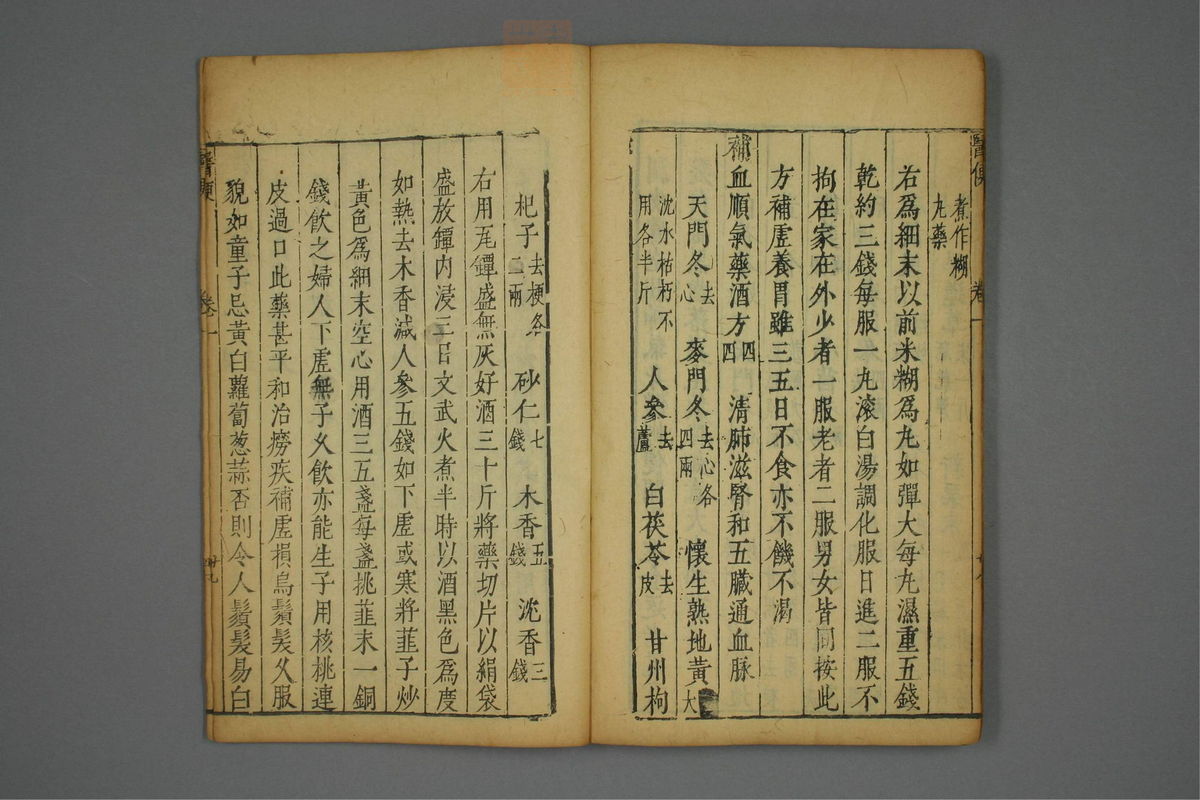 醫便
卷一
煮作糊
丸藥
右爲細末以前米糊爲丸如彈大每丸濕重五錢
乾約三錢每服一丸滚白湯調化服日進二服不
拘在家在外少者一服老者二服男女皆同按此
方補虛養胃雖三五日不食亦不饑不渴
補血順氣藥酒方四四 清肺滋腎和五臟通血脉
天門冬去心 麥門冬去心各四兩 懷生熟地黃大
沈水枯朽不用各半斤 人參去蘆 白茯苓去皮 甘州枸
杞子去梗各二兩 砂仁七錢 木香五錢 沈香三錢
右用瓦罈盛無灰好酒三十斤將藥切片以絹袋
盛放罈内浸三日文武火煮半時以酒黑色爲度
如熱去木香減人參五錢如下虛或寒將韮子炒
黃色爲細末空心用酒三五盞每盞挑韮末一銅
錢飲之婦人下虛無子久飲亦能生子用核桃連
皮過口此藥甚平和治癆疾補虛損烏鬚髮久服
貌如童子忌黃白蘿蔔葱蒜否則令人鬚髮易白
醫便
卷一